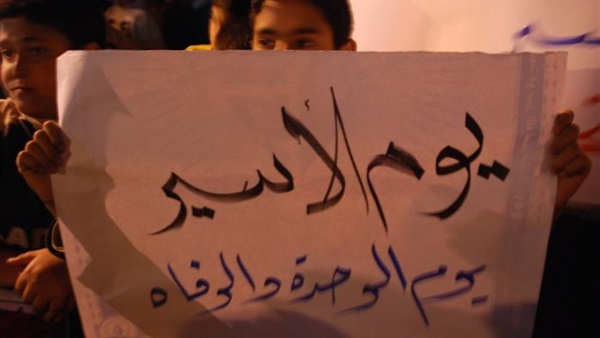 يوم الأسير
يوم الوحدة والوفاء